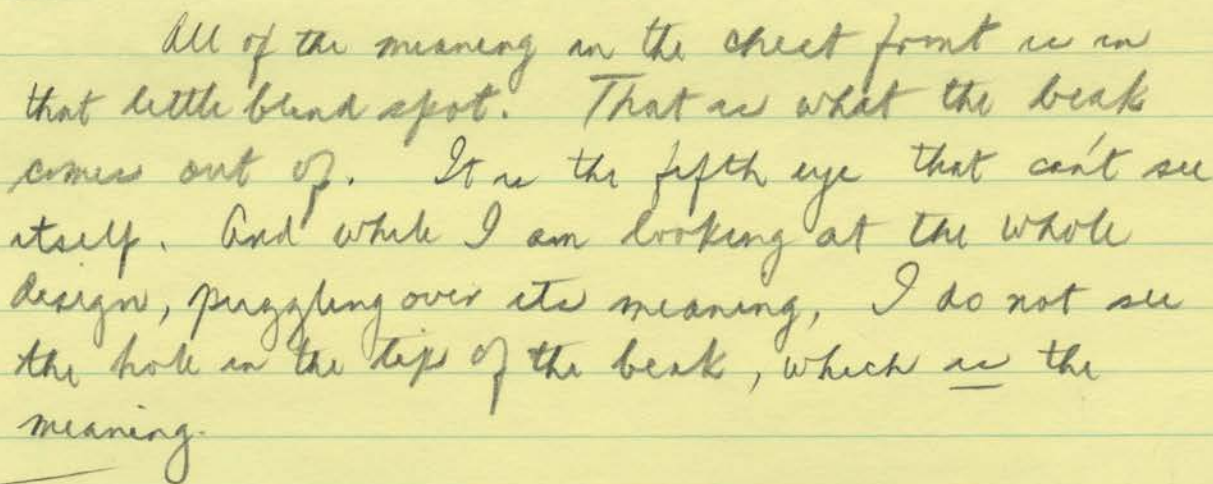 All of the meaning in the chest front is in
that little blind spot. That is what the beak
comes out of. It is the fifth eye that can't see
itself. And while I am looking at the whole
design, puzzling over its meaning, I do not see
the hole in the tip of the beak, which is the
meaning.